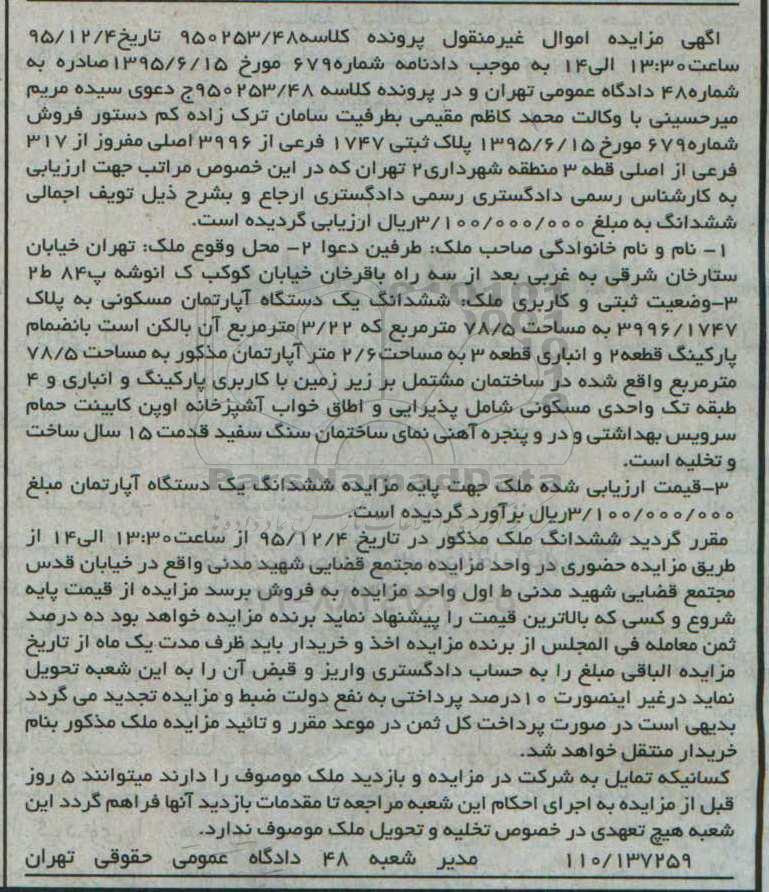 اگهی مزایده اموال غیرمنقول پرونده کلاسه۹۵۰۲۵۳/۴۸ تاریخ۹۵/۱۲/۴
ساعت۱۳:۳۰ الی۱۴ به موجب دادنامه شماره۶۷۹ مورخ ۱۳۹۵/۶/۱۵صادره به
شماره۴۸ دادگاه عمومی تهران و در پرونده کلاسه ۹۵۰۲۵۳/۴۸ج دعوی سیده مریم
میرحسینی با وکالت محمد کاظم مقیمی بطرفیت سامان ترک زاده کم دستور فروش
شماره۶۷۹ مورخ ۱۳۹۵/۶/۱۵ پلاک ثبتی ۱۷۴۷ فرعی از ۳۹۹۶ اصلی مفروز از ۳۱۷
فرعی از اصلی قطه ۳ منطقه شهرداری۲ تهران که در این خصوص مراتب جهت ارزیابی
به کارشناس رسمی دادگستری رسمی دادگستری ارجاع و بشرح ذیل تویف اجمالی
ششدانگ به مبلغ ۳/۱۰۰/۰۰۰/۰۰۰ریال ارزیابی گردیده است.
۱- نام و نام خانوادگی صاحب ملک: طرفین دعوا ۲- محل وقوع ملک: تهران خیابان
ستارخان شرقی به غربی بعد از سه راه باقرخان خیابان کوکب ک انوشه پ۸۴ ط۲
۳-وضعیت ثبتی و کاربری ملک: ششدانگ یک دستگاه آپارتمان مسکونی به پلاک
۳۹۹۶/۱۷۴۷ به مساحت ۷۸/۵ مترمربع که ۳/۲۲ مترمربع آن بالکن است بانضمام
پارکینگ قطعه۲ و انباری قطعه ۳ به مساحت۲/۶ متر آپارتمان مذکور به مساحت ۷۸/۵
مترمربع واقع شده در ساختمان مشتمل بر زیر زمین با کاربری پارکینگ و انباری و ۴
طبقه تک واحدی مسکونی شامل پذیرایی و اطاق خواب آشپزخانه اوپن کابینت حمام
سرویس بهداشتی و در و پنجره آهنی نمای ساختمان سنگ سفید قدمت ۱۵ سال ساخت
و تخلیه است.
ParsNamadData
۳-قیمت ارزیابی شده ملک جهت پایه مزایده ششدانگ یک دستگاه آپارتمان مبلغ
۳/۱۰۰/۰۰۰/۰۰۰ریال برآورد گردیده است.
مقرر گردید ششدانگ ملک مذکور در تاریخ ۹۵/۱۲/۴ از ساعت۱۳:۳۰ الی۱۴ از
طریق مزایده حضوری در واحد مزایده مجتمع قضایی شهید مدنی واقع در خیابان قدس
مجتمع قضایی شهید مدنی ط اول واحد مزایده به فروش برسد مزایده از قیمت پایه
شروع و کسی که بالاترین قیمت را پیشنهاد نماید برنده مزایده خواهد بود ده درصد
ثمن معامله فی المجلس از برنده مزایده اخذ و خریدار باید ظرف مدت یک ماه از تاریخ
مزایده الباقی مبلغ را به حساب دادگستری واریز و قبض آن را به این شعبه تحویل
نماید درغیر اینصورت ۱۰درصد پرداختی به نفع دولت ضبط و مزایده تجدید می گردد
بدیهی است در صورت پرداخت کل ثمن در موعد مقرر و تائید مزایده ملک مذکور بنام
خریدار منتقل خواهد شد.
کسانیکه تمایل به شرکت در مزایده و بازدید ملک موصوف را دارند میتوانند ۵ روز
قبل از مزایده به اجرای احکام این شعبه مراجعه تا مقدمات بازدید آنها فراهم گردد این
شعبه هیچ تعهدی در خصوص تخلیه و تحویل ملک موصوف ندارد.
۱۱۰/۱۳۷۲۵۹ مدیر شعبه ۴۸ دادگاه عمومی حقوقی تهران